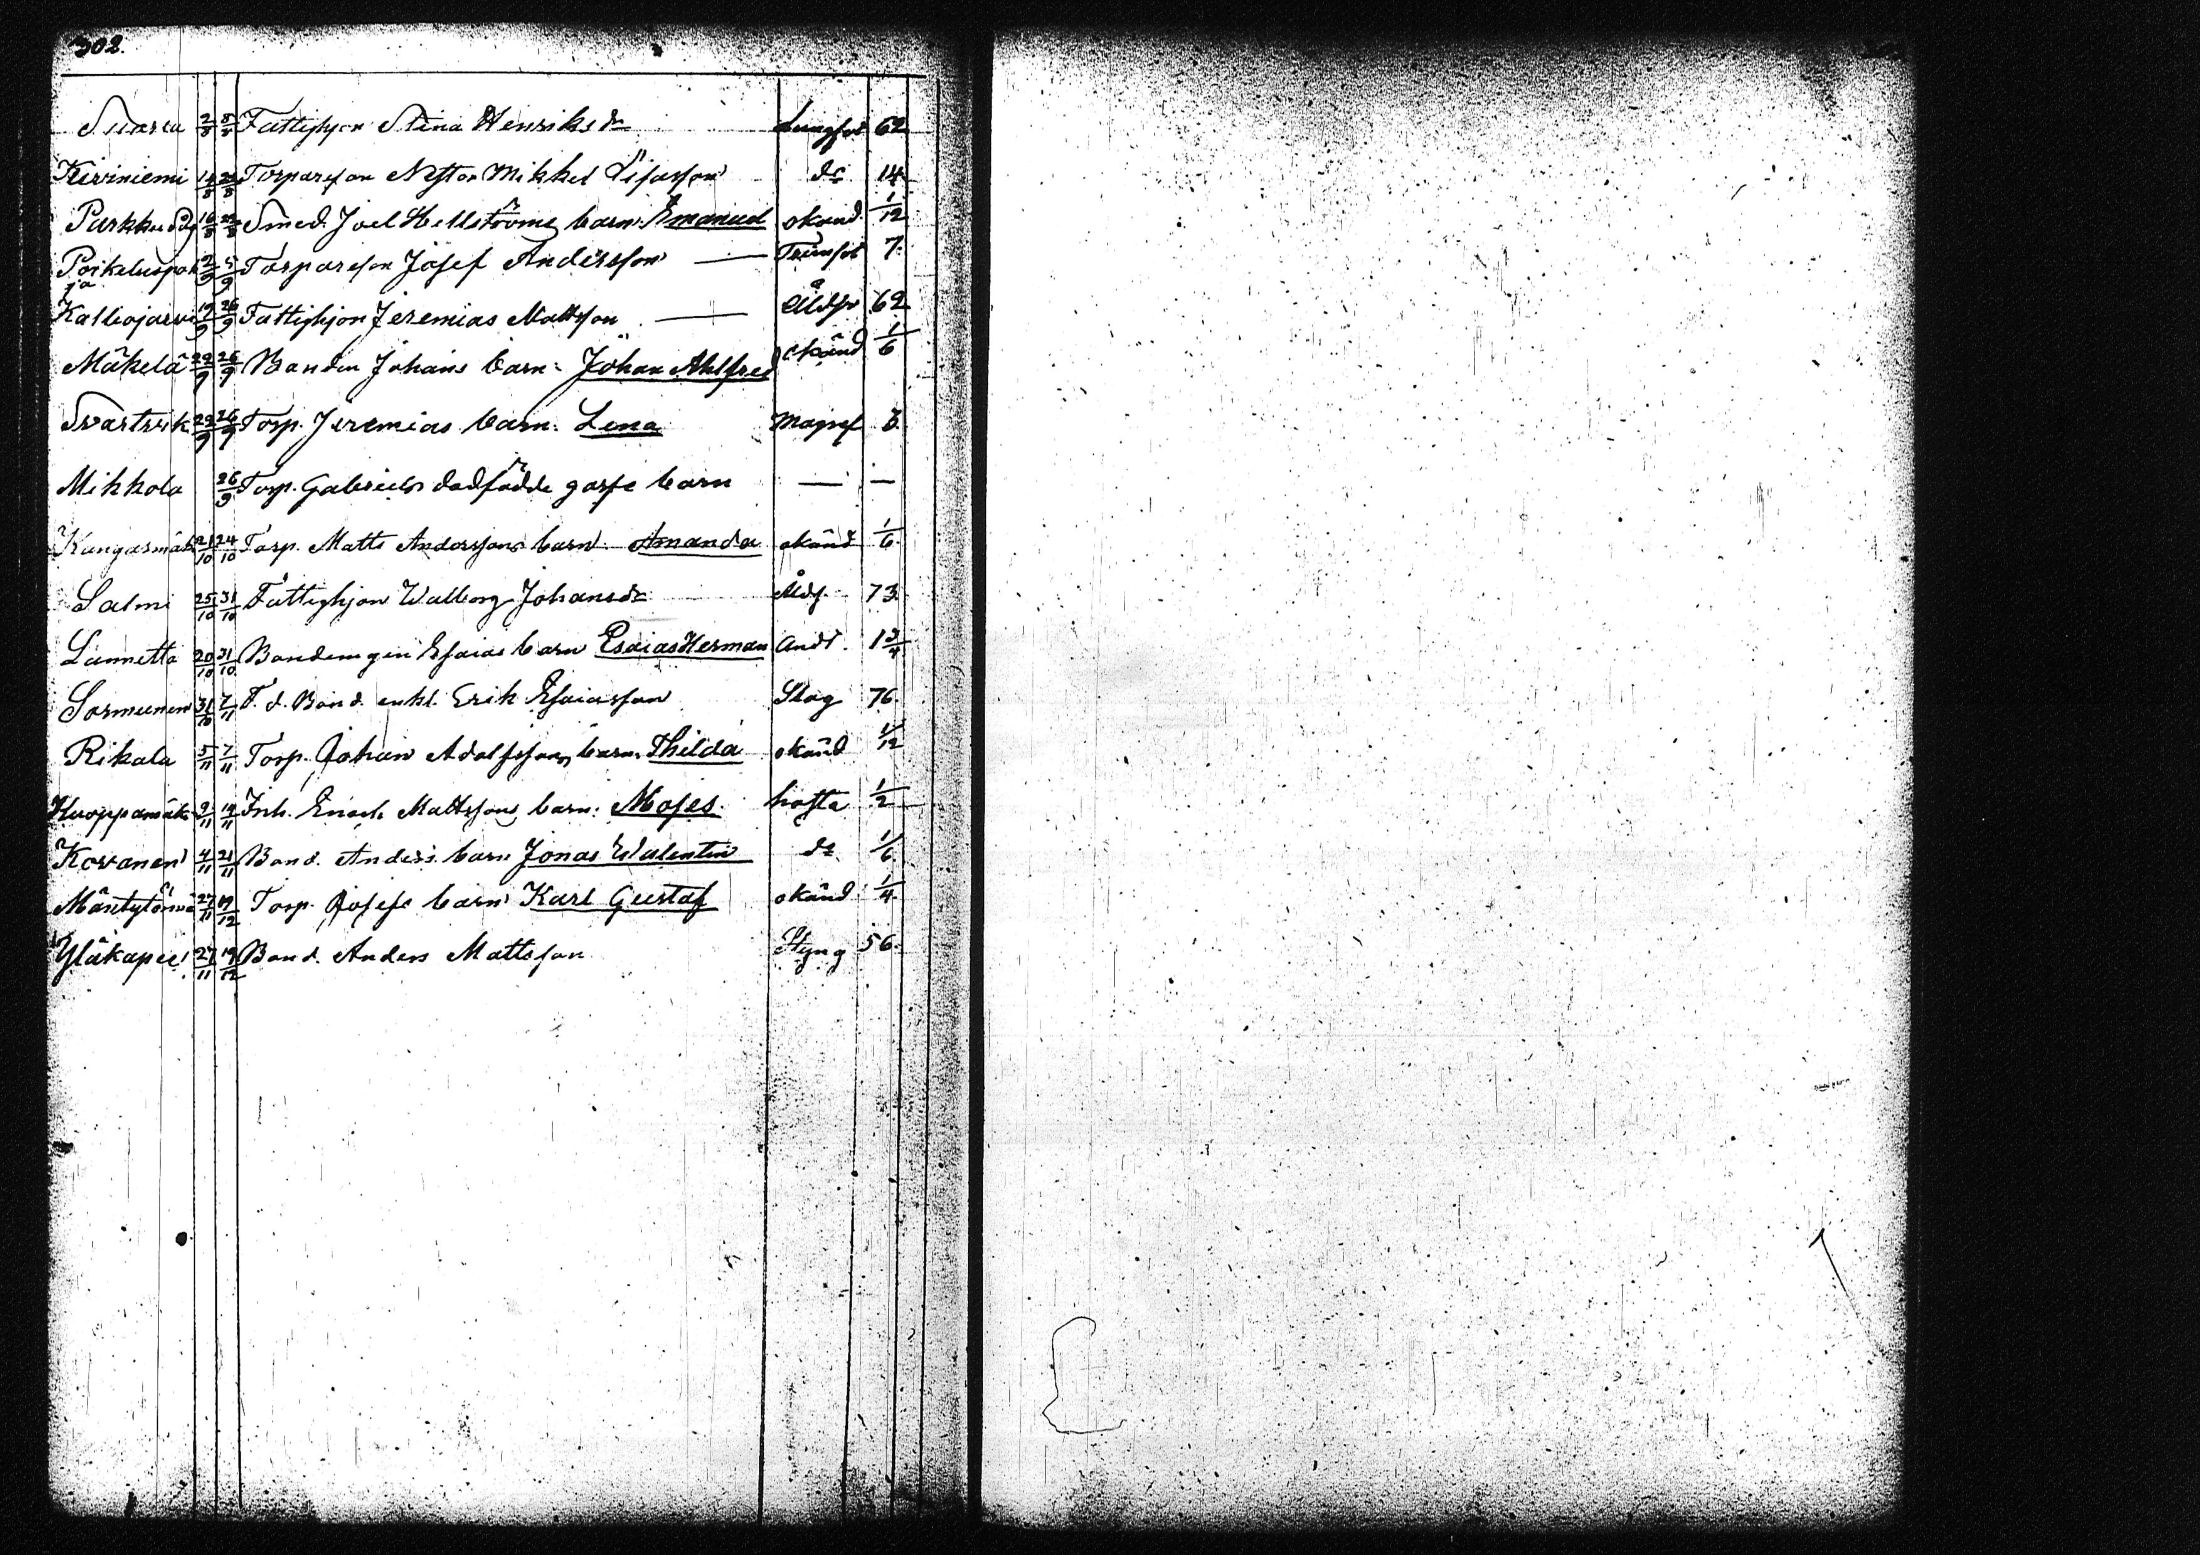 302.
2/8 5/8 Fattighjon Stina Henriksdr Lungsot 62
Kiviniemi 14/8 22/8 Torpareson Nestor Mikkel do 14
Parkku 16/8 22/8 Smed. Joel Hellströms barn: Emanuel okänd 1/12
2/9 5/9 Torpareson Josef Andersson — 7
Kalliojärvi 19/9 26/9 Fattighjon Jeremias Mattsson — Ålders 62
Mäkelä 22/9 26/9 Bonden Johans barn: Johan Ahlfred okänd 1/6
Svartvik 22/9 26/9 Torp. Jeremias barn. Lena Magref 3
Mikkola 26/9 Torp. Gabriels dödfödde gosse barn — —
Kangasmäki 21/10 24/10 Torp. Matts Anderssons barn. Amanda okänd 1/6
Salmi 25/10 31/10 Fattighjon Walborg Johansdr Åldr. 73
Lannetta 20/10 31/10 Bondemågen Esaias barn Esaias Herman Andt. 1 3/4
Sormunen 31/10 7/11 F. d. Bond. enkl. Erik Esaiasson Slag 76.
Rikala 5/11 7/11 Torp. Johan Adolfssons barn. Thilda okänd 1/12
Kuoppamäki 2/11 14/11 Inh. Enoch Mattssons barn: Moses. hosta 1/2
Kovanen 4/11 21/11 Bond. Anders barn Jonas Walentin do 1/6
Mäntytörmä 27/11 19/12 Torp. Josefs barn Karl Gustaf okänd 1/4
Yläkapee 27/11 19/12 Bond. Anders Mattsson Styng 56.